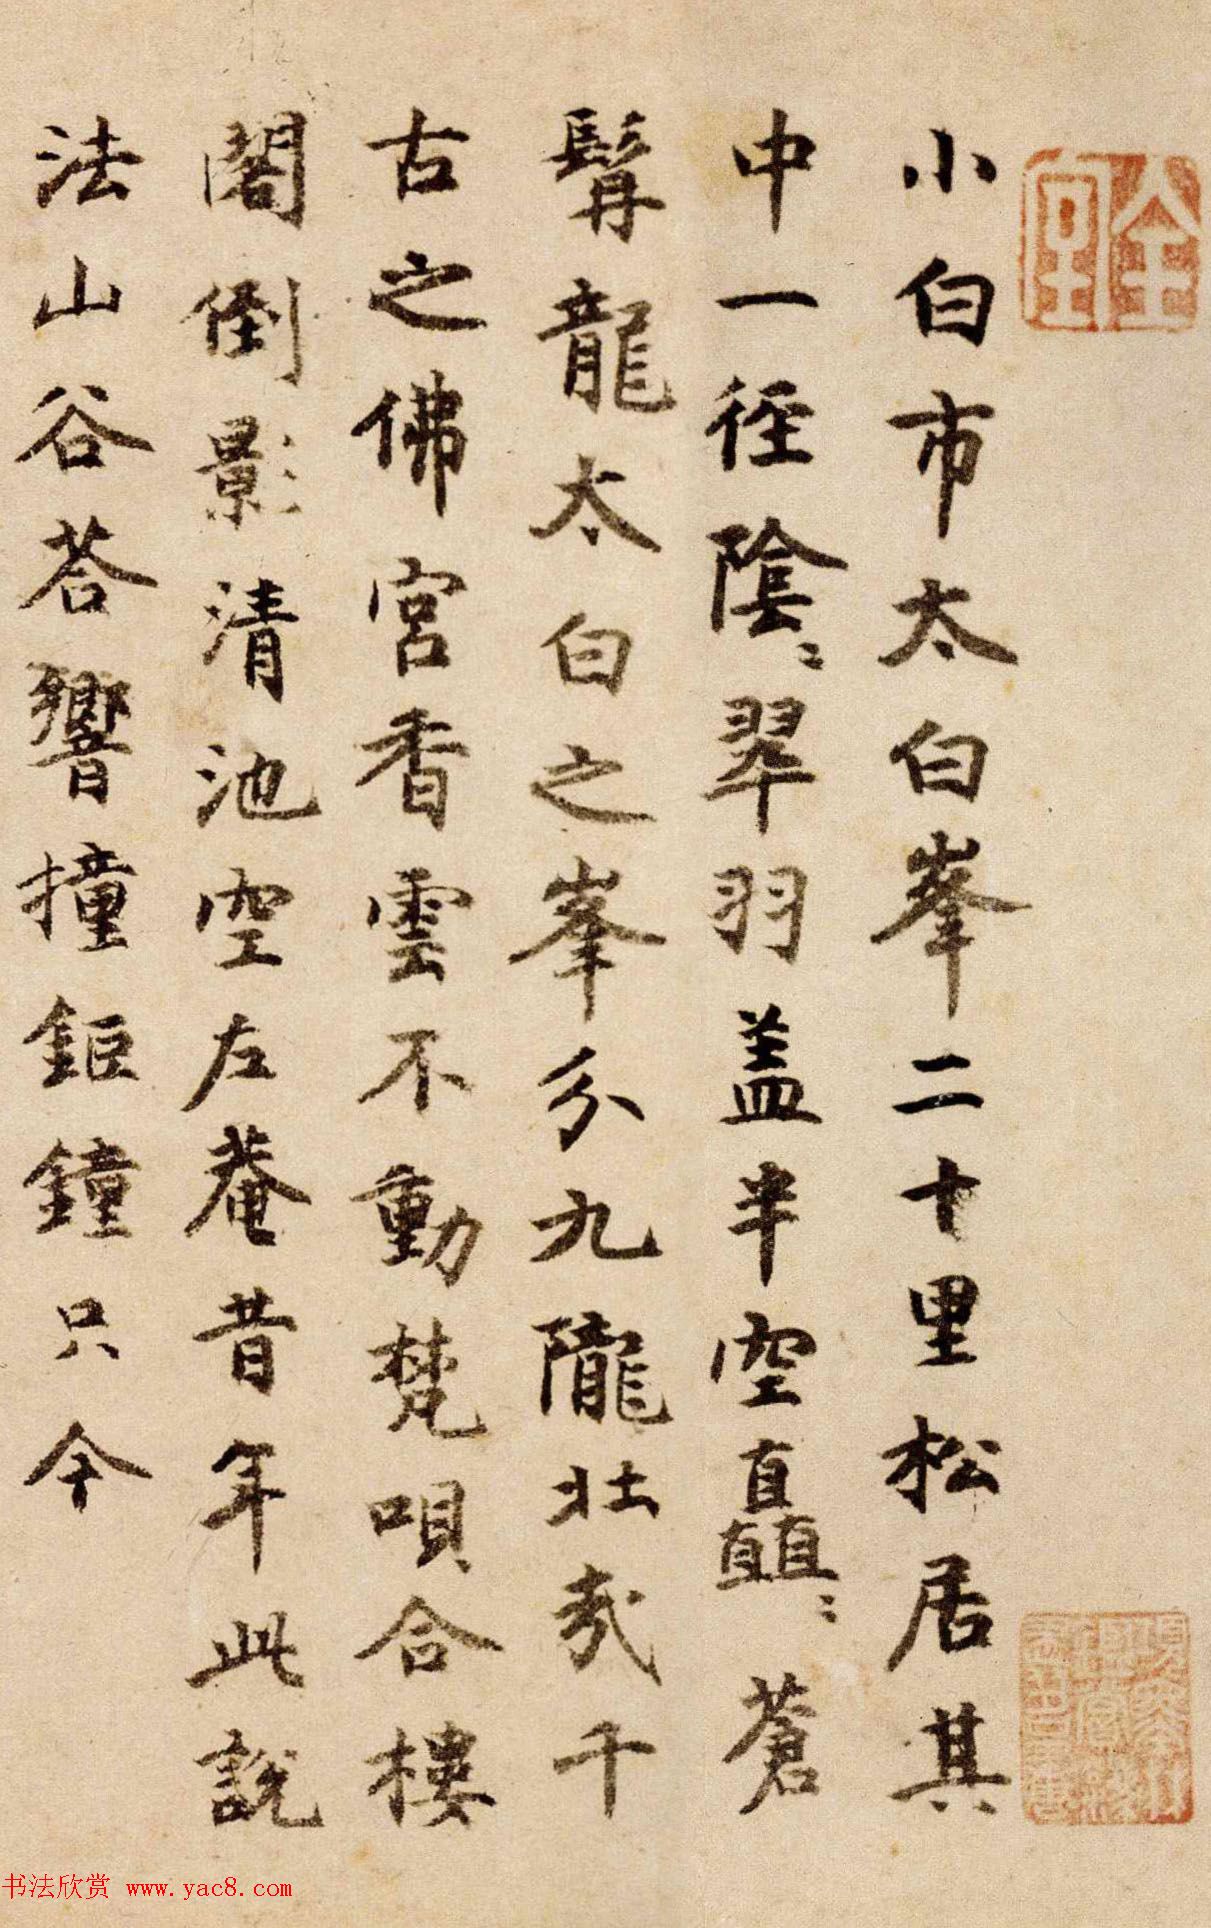 小白市太白峯二十里松居其
中一徑陰〻翠羽盖半空矗〻蒼
髯龍太白之峯分九隴壯哉千
古之佛宮香雲不動梵唄合樓
閣倒影清池空左菴昔年此說
法山谷荅響撞鉅鐘只今
书法欣赏 www.yac8.com